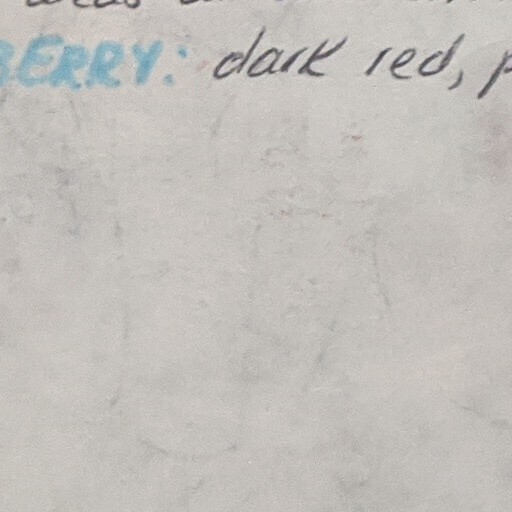 BERRY: dark red, p